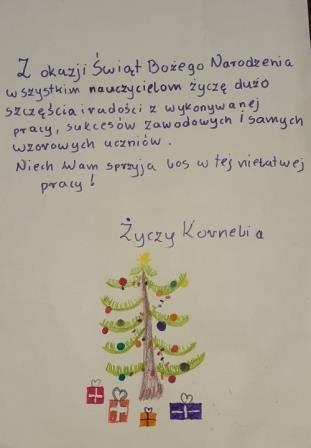 Z okazji Świąt Bożego Narodzenia
wszystkim nauczycielom życzę dużo
szczęścia i radości z wykonywanej
pracy, sukcesów zawodowych i samych
wzorowych uczniów.
Niech Wam sprzyja los w tej niełatwej
pracy!
Życzy Kornelia